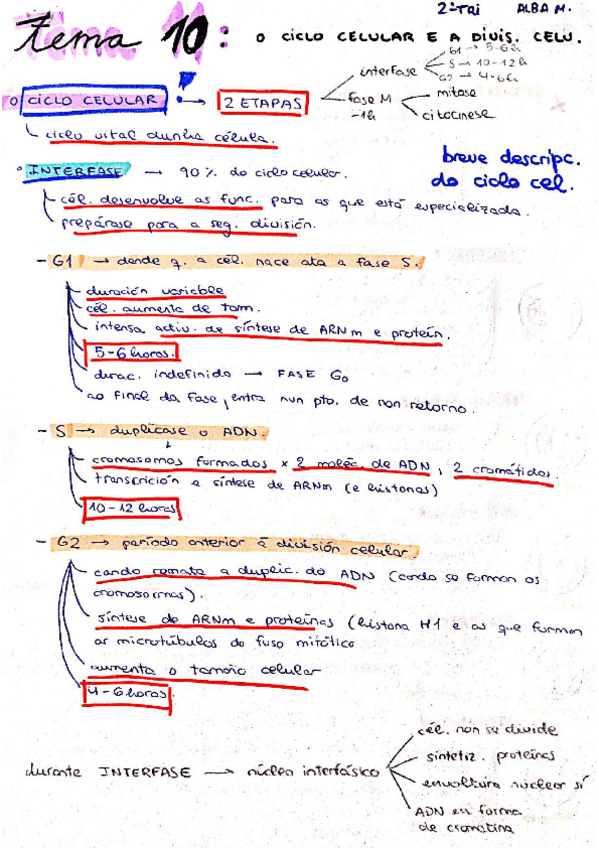 2ºTRI ALBA M.
tema 10: O CICLO CELULAR E A DIVIS. CELU.
O CICLO CELULAR → 2 ETAPAS
interfase
G1 → 5-6h
S → 10-12h
G2 → 4-6h
fase M
~1h
mitose
citocinese
ciclo vital dunha célula.
breve descripc.
do ciclo cel.
INTERFASE → 90% do ciclo celular.
cél. desenvolve as func. para as que está especializada.
prepárase para a seg. división.
- G1 → dende q. a cél. nace ata a fase S.
duración variable
cél. aumenta de tam.
intensa activ. de síntese de ARNm e proteín.
5-6 horas.
durac. indefinida → FASE G0
ao final da fase, entra nun pto. de non retorno.
- S → duplícase o ADN.
cromosomas formados x 2 moléc. de ADN, 2 cromátidas.
transcrición e síntese de ARNm (e histonas)
10-12 horas
- G2 → período anterior á división celular.
cando remata a duplic. do ADN (cando se forman os
cromosomas).
síntese de ARNm e proteínas (histona H1 e as que forman
os microtúbulos do fuso mitótico
aumenta o tamaño celular
4-6 horas.
durante INTERFASE → núcleo interfásico
cél. non se divide
sintetiz. proteínas
envoltura nuclear sí
ADN en forma
de cromatina